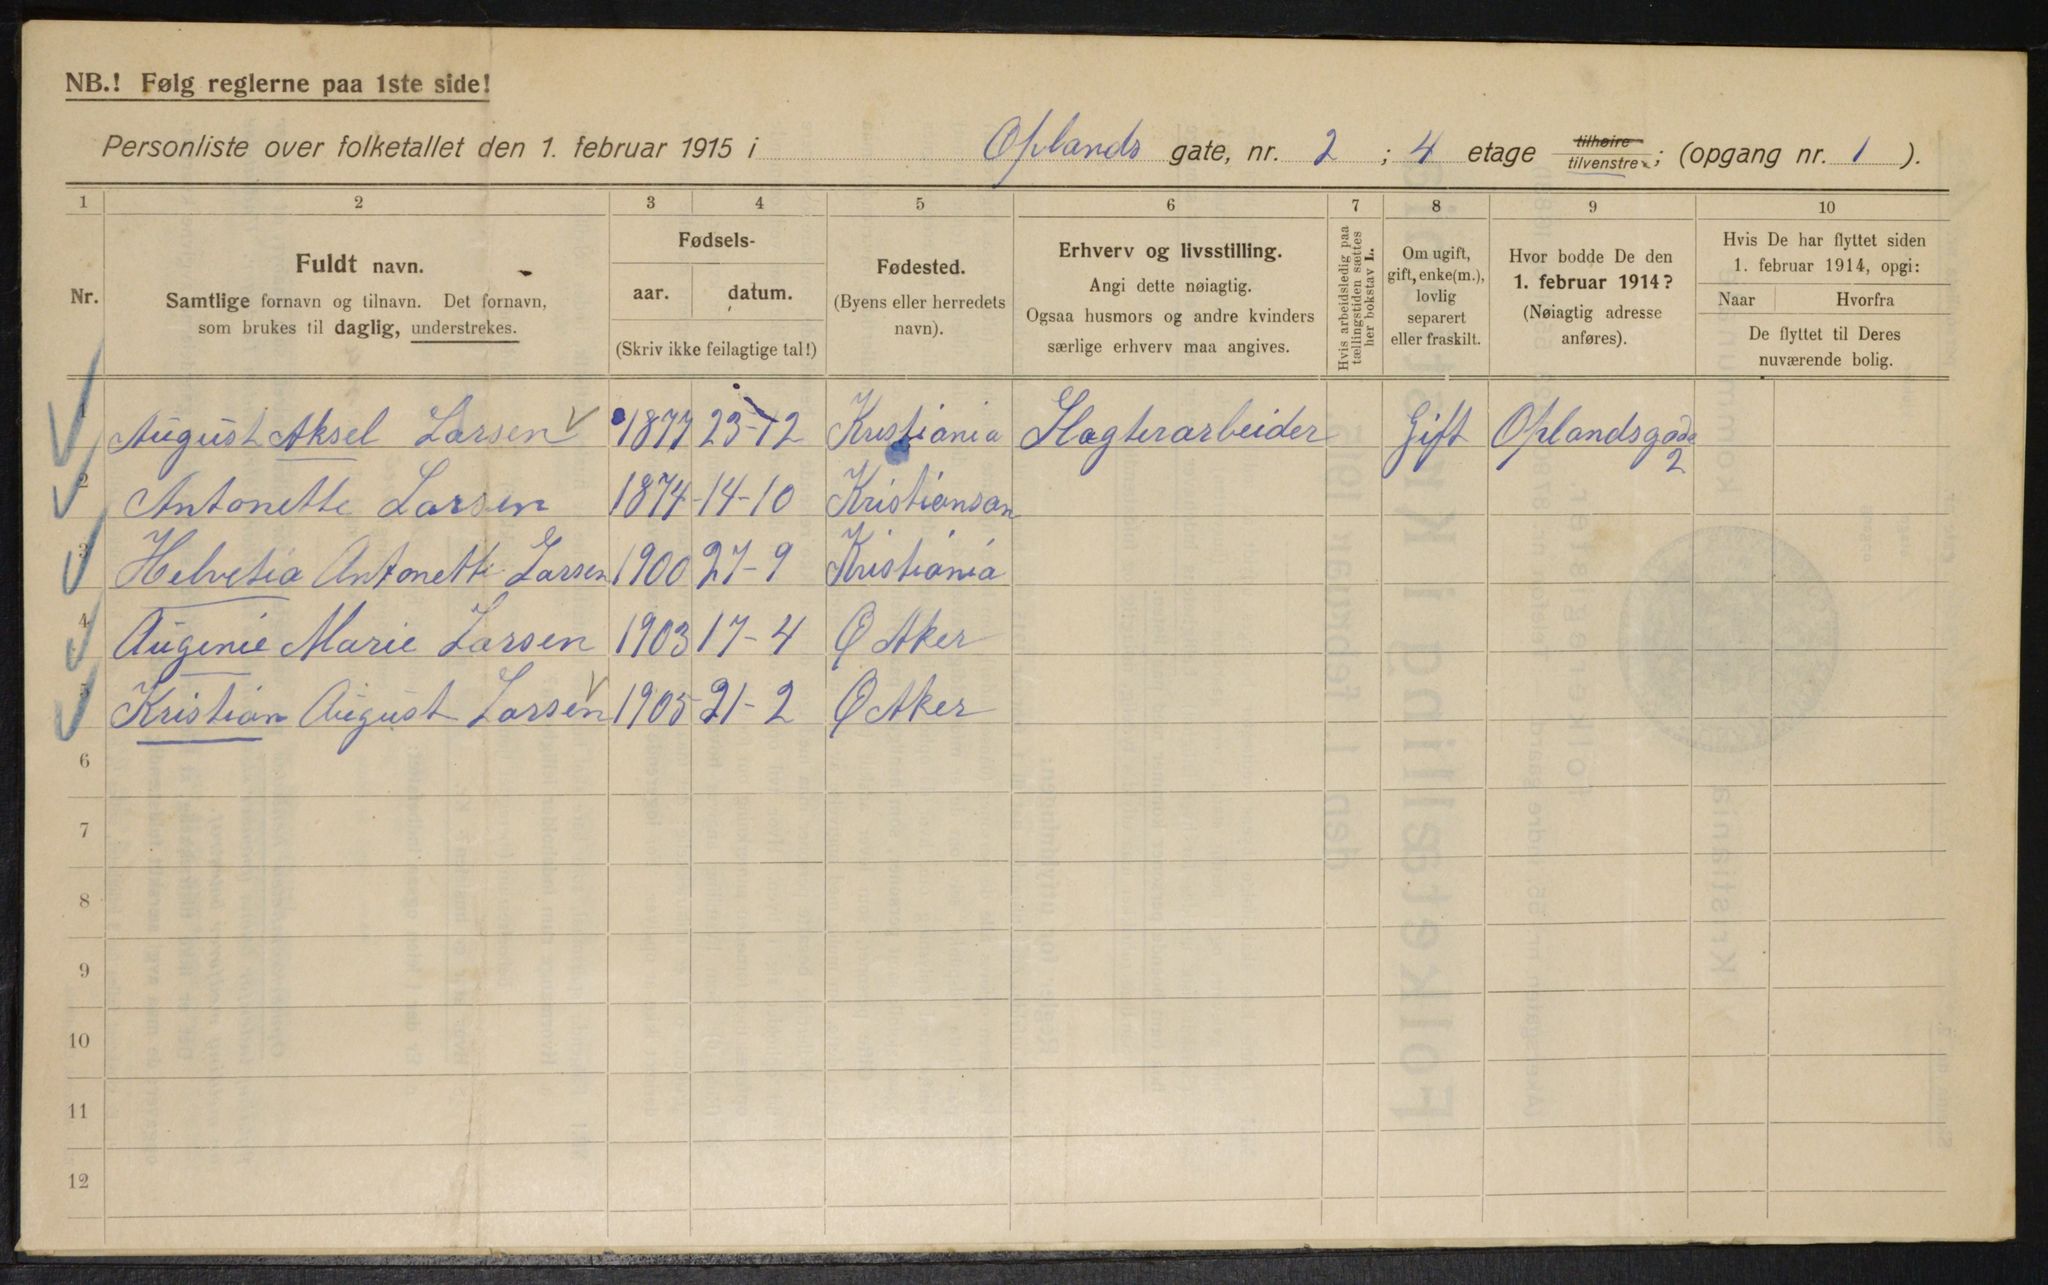 NB.! Følg reglerne paa 1ste side!
Personliste over folketallet den 1. februar 1915 i Oplands gate, nr. 2 ; 4 etage tilhøire tilvenstre ; (opgang nr. 1 ).
1 2 3 4 5 6 7 8 9 10
Nr.
Fuldt navn.
Samtlige fornavn og tilnavn. Det fornavn,
som brukes til daglig, understrekes.
Fødsels-
aar. datum.
(Skriv ikke feilagtige tal!)
Fødested.
(Byens eller herredets
navn).
Erhverv og livsstilling.
Angi dette nøiagtig.
Ogsaa husmors og andre kvinders
særlige erhverv maa angives.
Hvis arbeidsledig paa
tællingstiden sættes
her bokstav L.
Om ugift,
gift, enke(m.),
lovlig
separert
eller fraskilt.
Hvor bodde De den
1. februar 1914?
(Nøiagtig adresse
anføres).
Hvis De har flyttet siden
1. februar 1914, opgi:
Naar Hvorfra
De flyttet til Deres
nuværende bolig.
1 August Aksel Larsen 1877 23-12 Kristiania Slagterarbeider Gift Oplandsgade 2
2 Antonette Larsen 1874 14-10 Kristiansan
3 Helvetia Antonette Larsen 1900 27-9 Kristiania
4 Augenie Marie Larsen 1903 17-4 Ø Aker
5 Kristian August Larsen 1905 21-2 Ø Aker
6
7
8
9
10
11
12